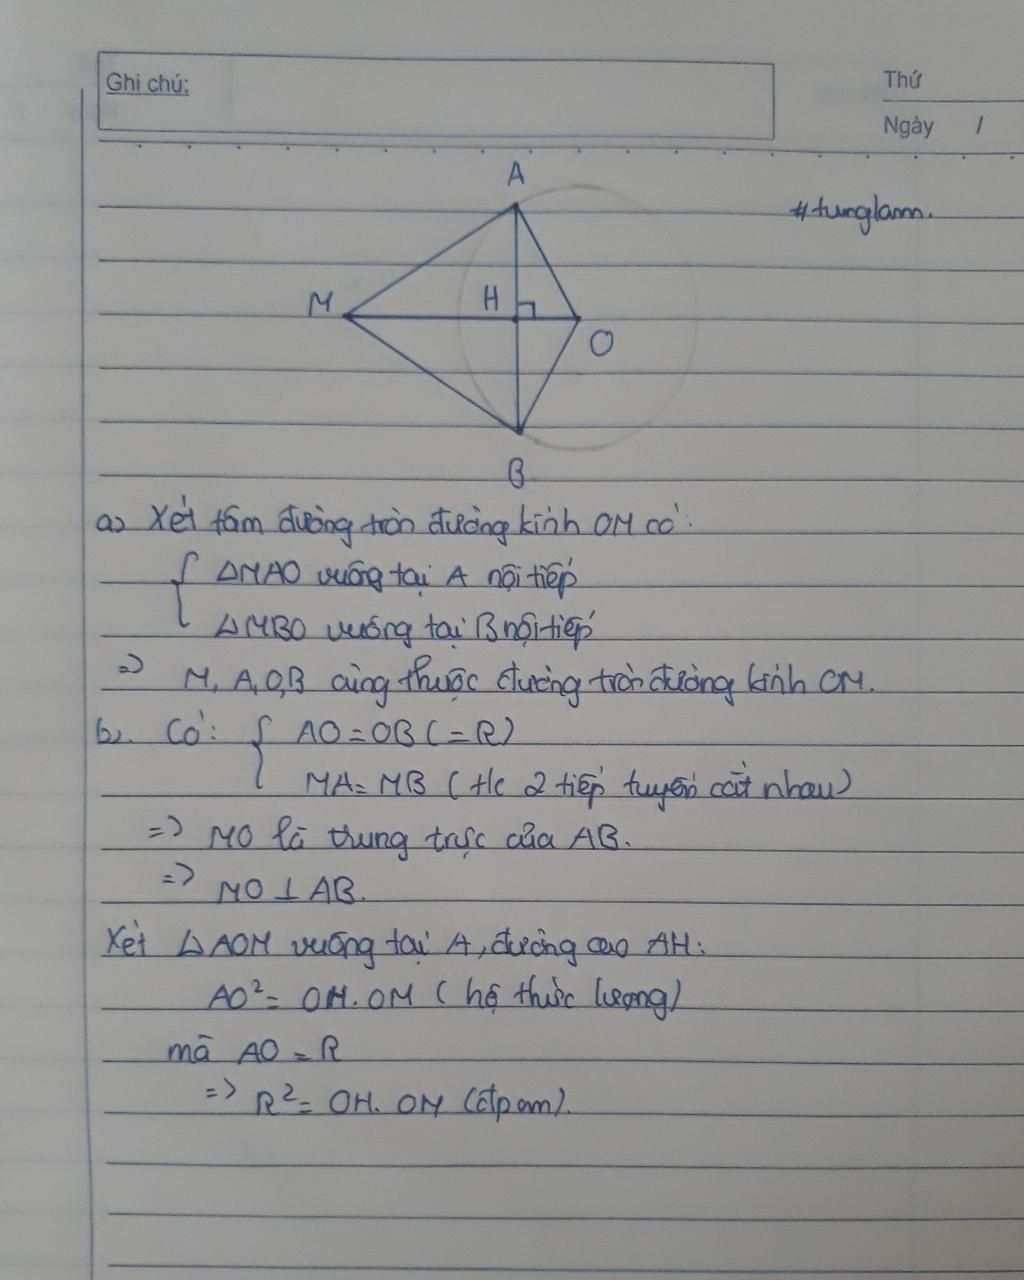 Ghi chú:
Thứ
Ngày /
#tunglam.
A
M
H
O
B
a) Xét tâm đường tròn đường kính OM có:
{ ΔMAO vuông tại A nội tiếp
ΔMBO vuông tại B nội tiếp
=> M, A, O, B cùng thuộc đường tròn đường kính OM.
b). Có: { AO = OB (= R)
MA = MB (t/c 2 tiếp tuyến cắt nhau)
=> MO là trung trực của AB.
=> MO ⊥ AB.
Xét ΔAOM vuông tại A, đường cao AH:
AO² = OH. OM (hệ thức lượng)
mà AO = R
=> R² = OH. OM (đpcm).